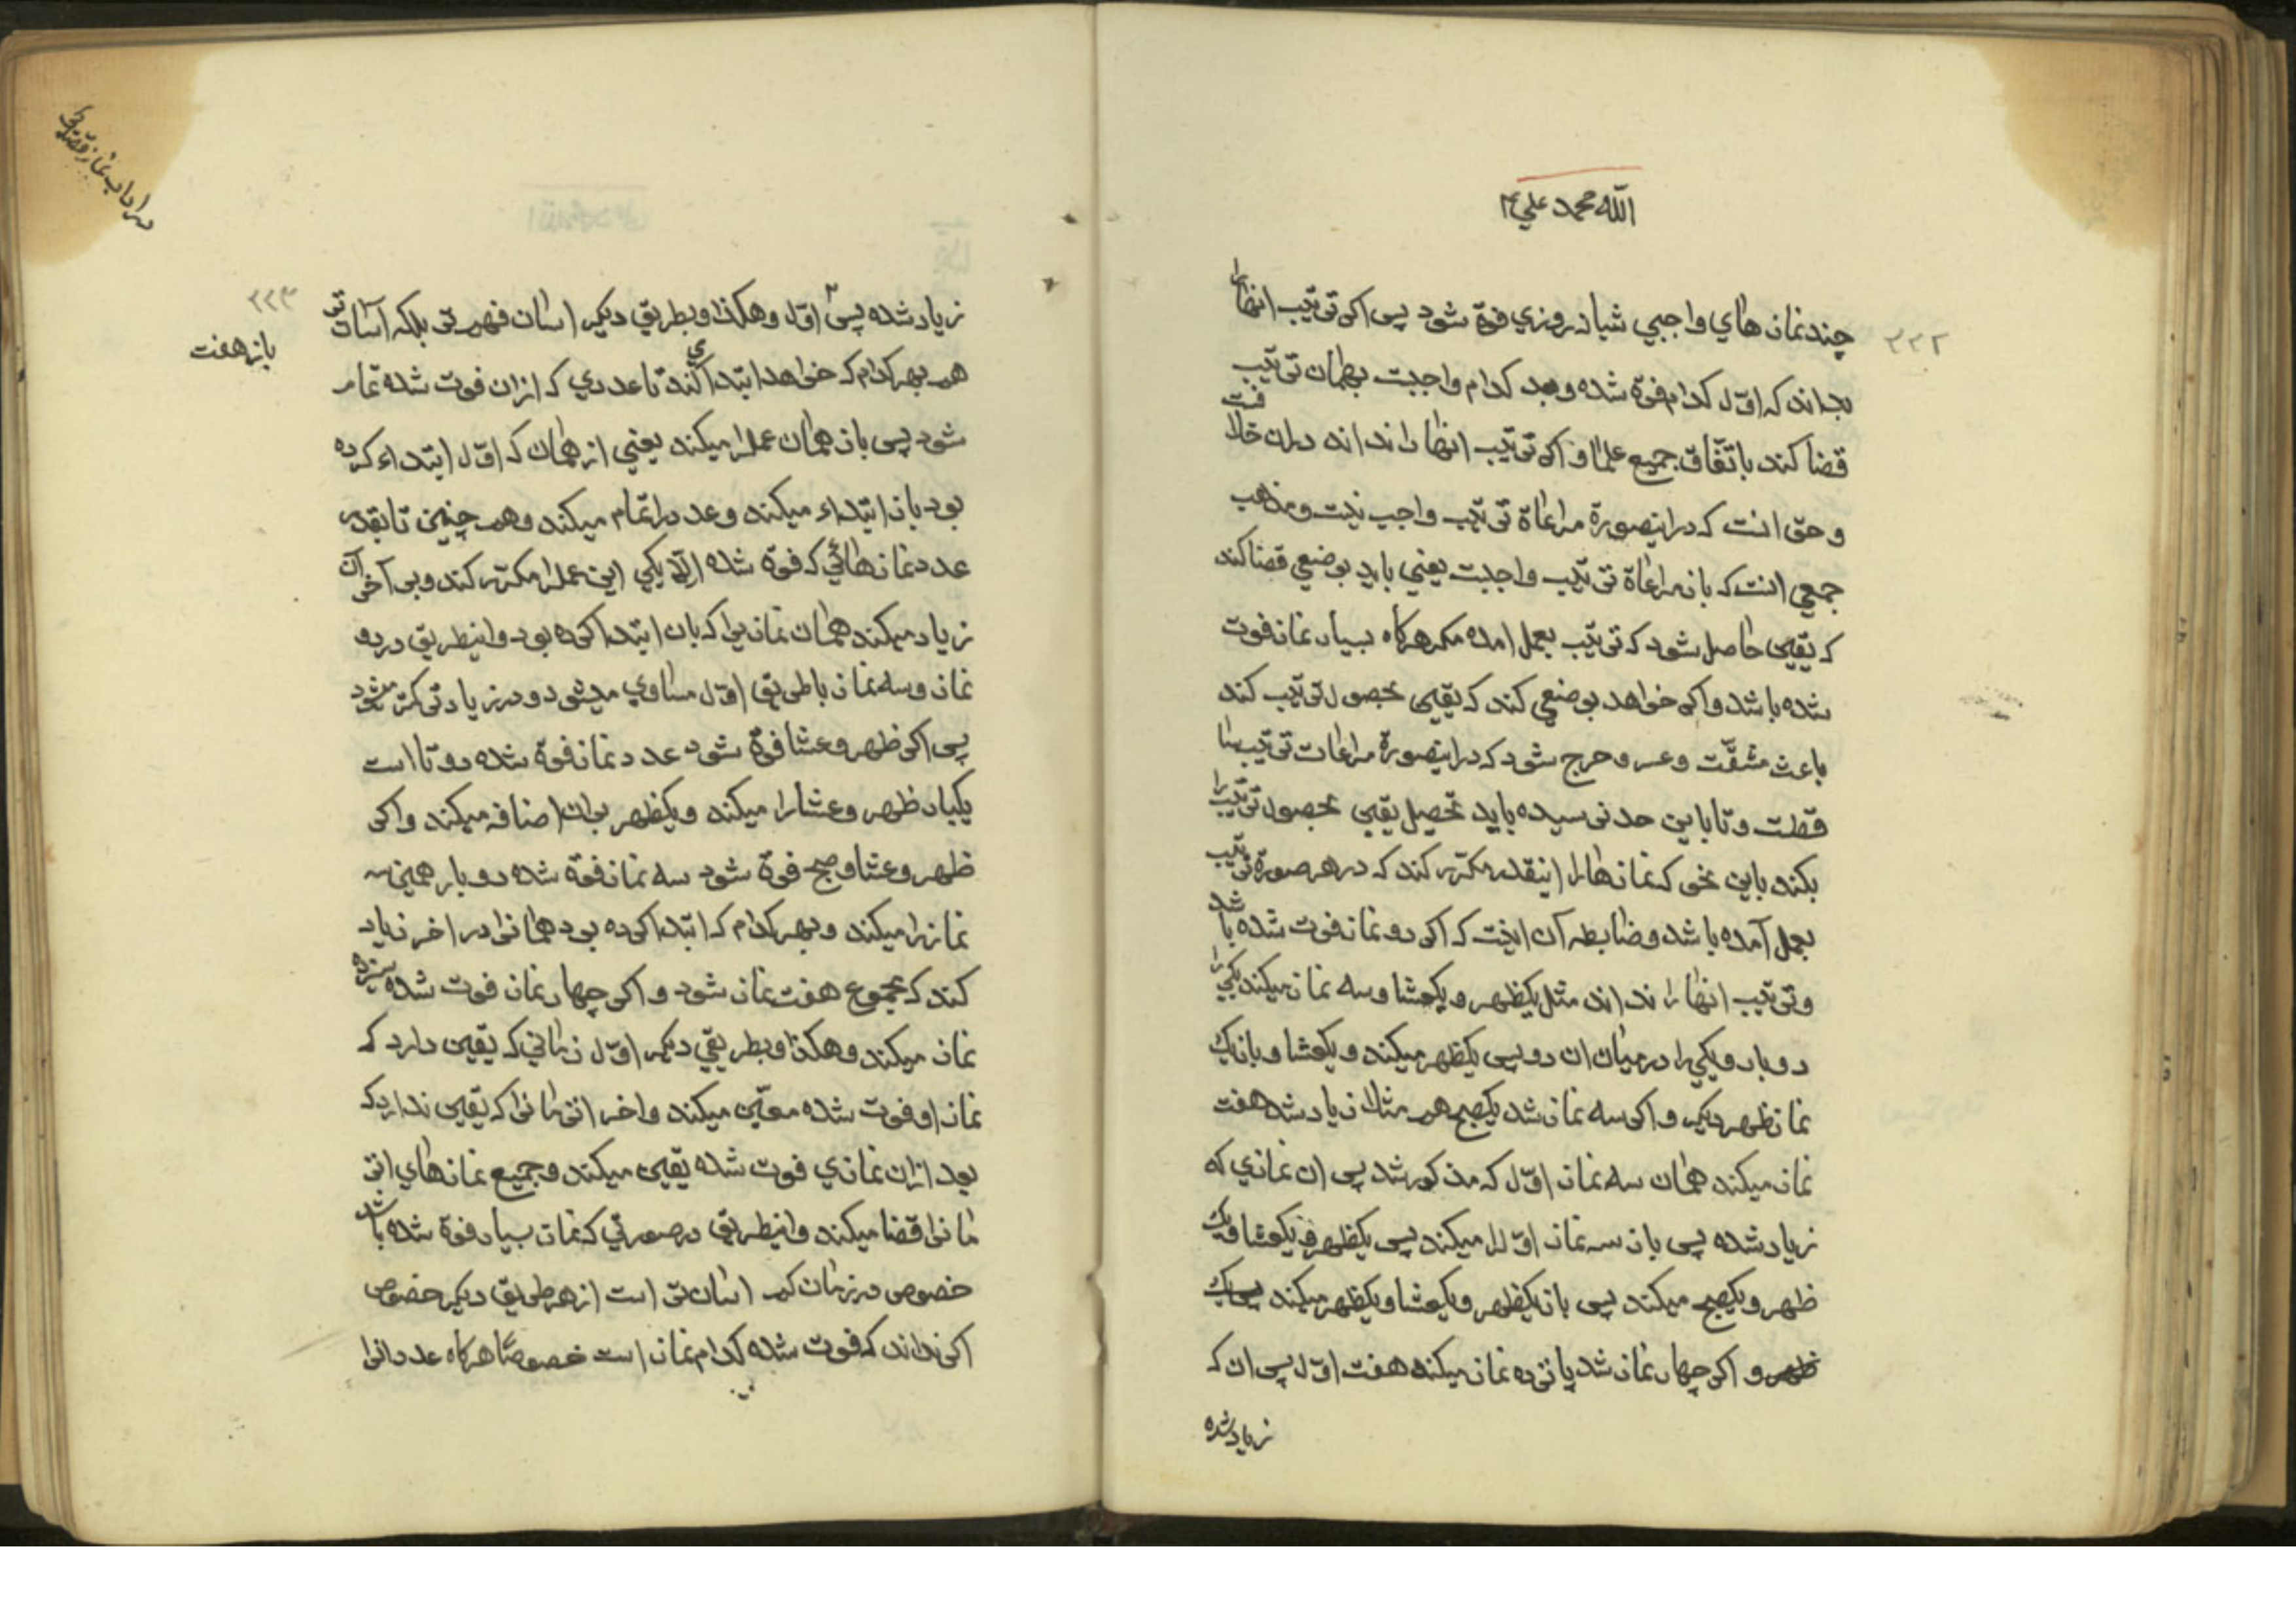 الله محمد علي
۳۳۲
چند نماز هاي واجبي شبانه روزي فوة شود پس اكر ترتيب انها را
بداند كه اوّل كدام فوة شده وبعد كدام واجبست بهمان ترتيب
قضا كند باتّفاق جميع علما و اكر ترتيب انها را نداند دران خلافست
و حق انست كه دراينصورة مراعاة ترتيب واجب نيست ومذهب
جمعي انست كه باز مراعاة ترتيب واجبست يعني بايد بوضعي قضا كند
كه يقين حاصل شود كه ترتيب بعمل امده مكر هركاه بسيار نماز فوت
شده باشد واكر خواهد بوضعي كند كه يقين بحصول ترتيب كند
باعث مشقّت وعسر وحرج شود كه دراينصورة مراعات ترتيب ساقطست
وتا باين حد نرسيده بايد تحصيل يقين بحصول ترتيب را
بكند باين نحو كه نماز هارا اينقدر مكرّر كند كه در هر صورة ترتيب
بعمل آمده باشد وضابطه آن اينست كه اكر دو نماز فوت شده باشد
وترتيب انها را نداند مثل يكظهر ويكعشا وسه نماز ميكند يكي را
دوبار ويكي را درميان ان دو پس يكظهر ميكند ويكعشا وباز يك
نماز ظهر ديكر واكر سه نماز شد يكصبح هم مثلا زياد شد هفت
نماز ميكند همان سه نماز اوّل كه مذكور شد پس ان نمازي كه
زياد شده پس باز سه نماز اوّل را ميكند پس يكظهر ويكعشا ويك
ظهر ويكصبح ميكند پس باز يكظهر ويكعشا ويكظهر ميكند
و اكر چهار نماز شد پانزده نماز ميكند هفت اوّل پس ان كه
زياد شده
در اداب نماز قضا
۳۳۳
باز هفت
زياد شده پس اوّل وهكذا وبطريق ديكر اسان فهم تر بلكه آسان تر
هم بهر كدام كه خواهد ابتداي كند تا عددي كه ازان فوت شده تمام
شود پس باز همان عمل را ميكند يعني از همان كه اوّل ابتداء كرده
بود باز ابتداء ميكند وعدد را تمام ميكند وهم چنين تا بقدر
عدد نماز هائي كه فوة شده الّا يكي اين عمل را مكرّر كند وبر آخر آن
زياد ميكند همان نماز يرا كه بان ابتدا كرده بود واينطريق در دو
نماز وسه نماز با طريق اوّل مساوي ميشود ودر زيادتر كمتر ميشود
پس اكر ظهر وعشا فوة شود عدد نماز فوة شده دوتا است
يكبار ظهر وعشا را ميكند ويكظهر بران اضافه ميكند واكر
ظهر وعشا وصبح فوة شود سه نماز فوة شده دوبار همين سه
نماز را ميكند وبهر كدام كه ابتدا كرده بود همانرا در اخر زياد
كند كه مجموع هفت نماز شود واكر چهار نماز فوت شده سيزده
نماز ميكند وهكذا وبطريقي ديكر اوّل زماني كه يقين دارد كه
نماز او فوت شده معيّن ميكند واخر ان زمانرا كه يقين ندارد كه
بعد ازان نمازي فوت شده يقين ميكند وجميع نماز هاي ان
زمانرا قضا ميكند واينطريق درصورتي كه نماز بسيار فوة شده باشد
خصوص در زمان كم اسان تر است از هر طريق ديكر خصوص
اكر نداند كه فوت شده كدام نماز است خصوصًا هركاه عدد انرا